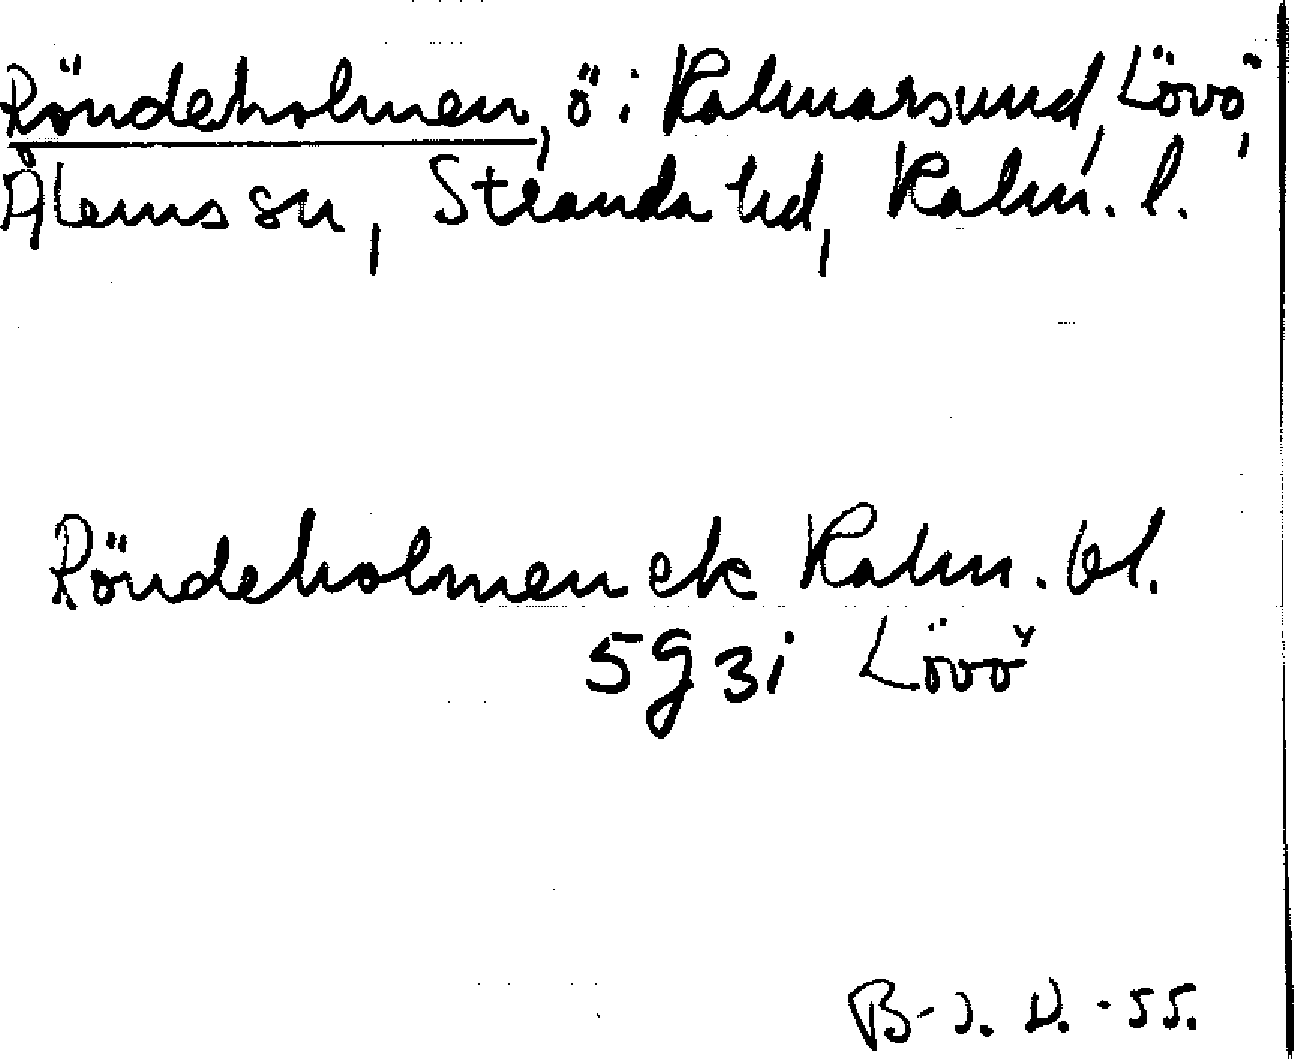 Röndeholmen, ö i Kalmarsund, Lövö,
Ålems sn, Stranda hd, Kalm. l.
Röndeholmen ek Kalm. bl.
5g3i Lövö
B-J. N. -55.